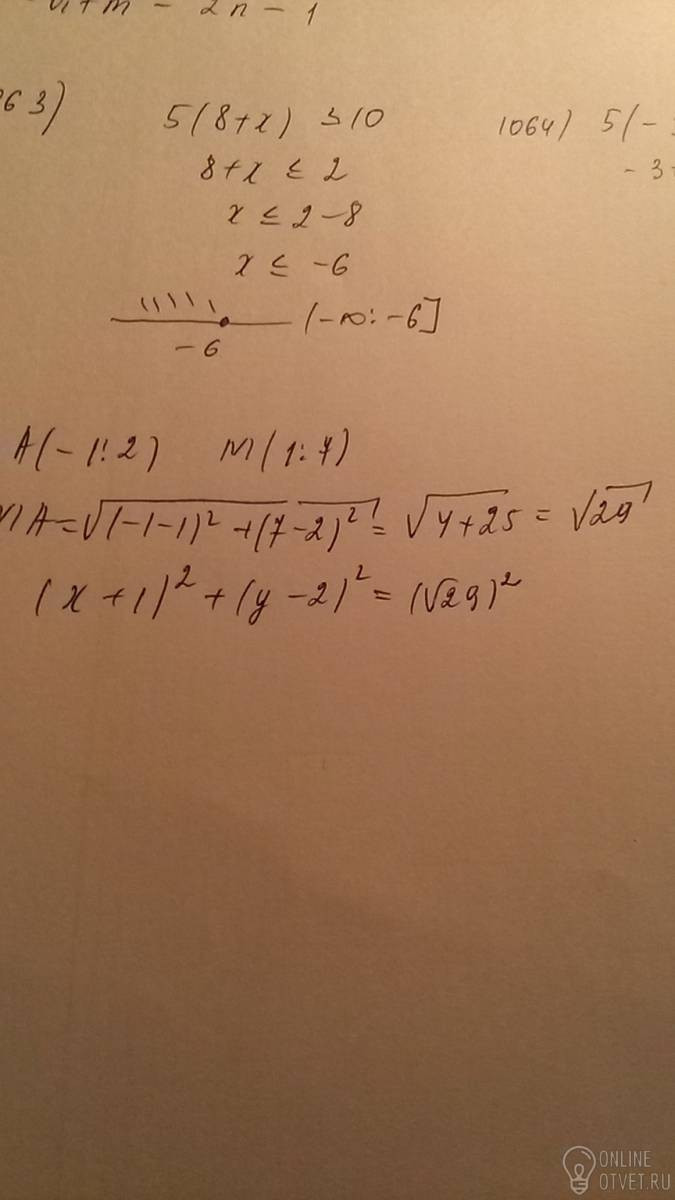 + m - 2n - 1
63) 5(8+x) ≤ 10 1064) 5(-
8+x ≤ 2 - 3
x ≤ 2-8
x ≤ -6
(-∞; -6]
-6
A(-1; 2) M(1; 7)
MA = √((-1-1)² + (7-2)²) = √(4+25) = √29
(x+1)² + (y-2)² = (√29)²
ONLINE
OTVET.RU